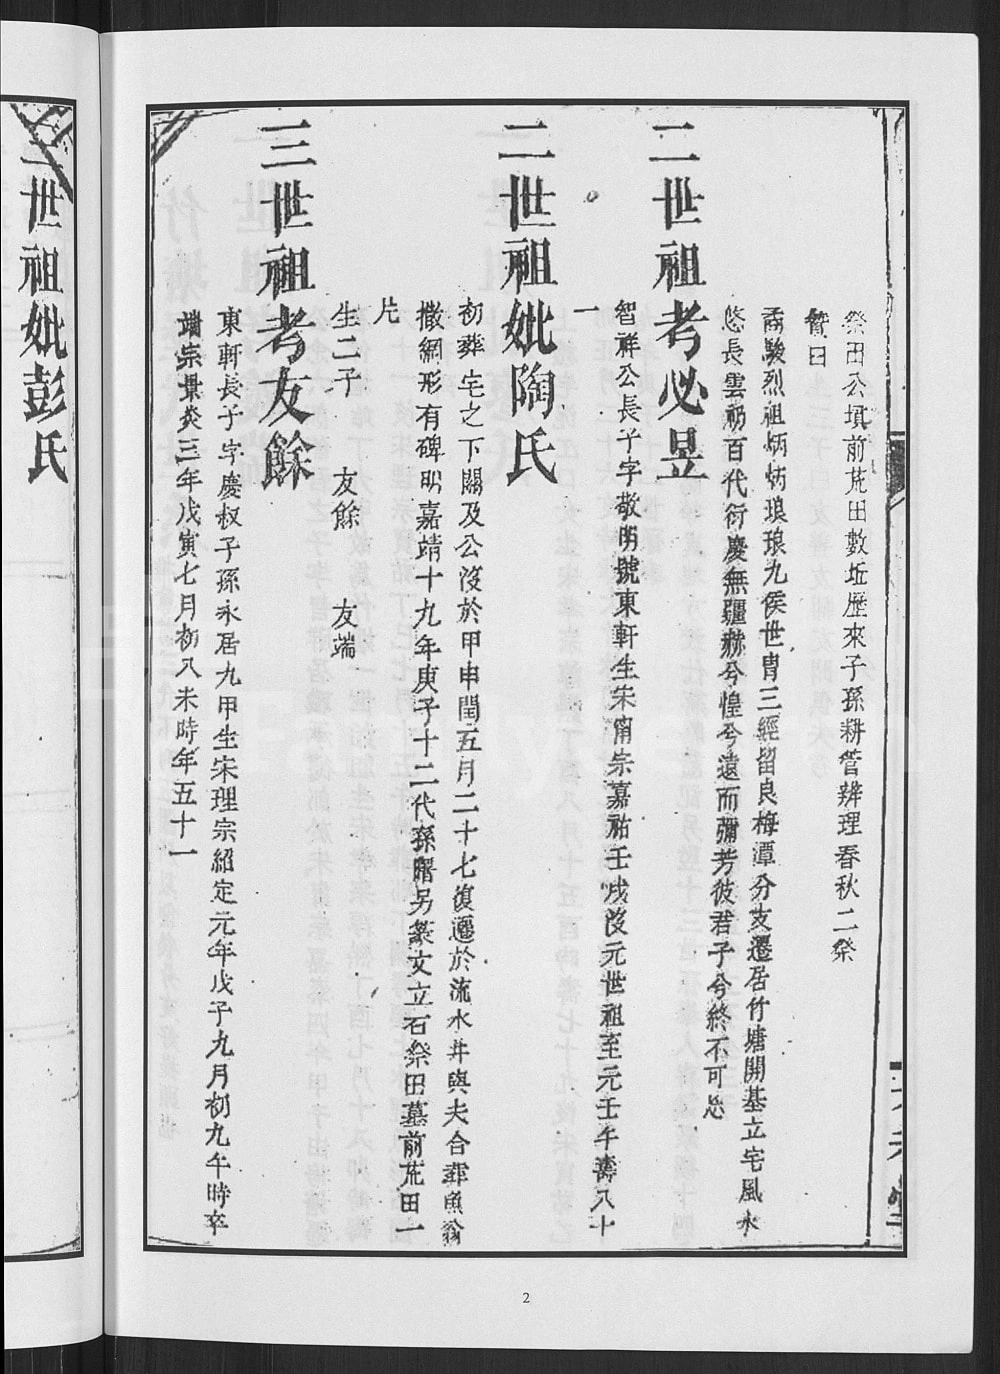 祭田公墳前荒田數坵歷來子孫耕管辦理春秋二祭
贊曰
矞駿烈祖炳炳琅琅九侯世胄三經留良梅潭分支遷居竹塘開基立宅風水
悠長雲礽百代衍慶無疆赫兮愰兮遠而彌芳彼君子兮終不可忘
二世祖考必昱
智祥公長子字敬明號東軒生宋甯宗嘉祐壬戌沒元世祖至元壬午壽八十
一
二世祖妣陶氏
初葬宅之下關及公沒於甲申閏五月二十七復遷於流水井與夫合葬魚翁
撒網形有碑明嘉靖十九年庚子十二代孫曙另篆文立石祭田墓前荒田一
片
生二子 友餘 友端
三世祖考友餘
東軒長子字慶叔子孫永居九甲生宋理宗紹定元年戊子九月初九午時卒
端宗景炎三年戊寅七月初八未時年五十一
三世祖妣彭氏
2